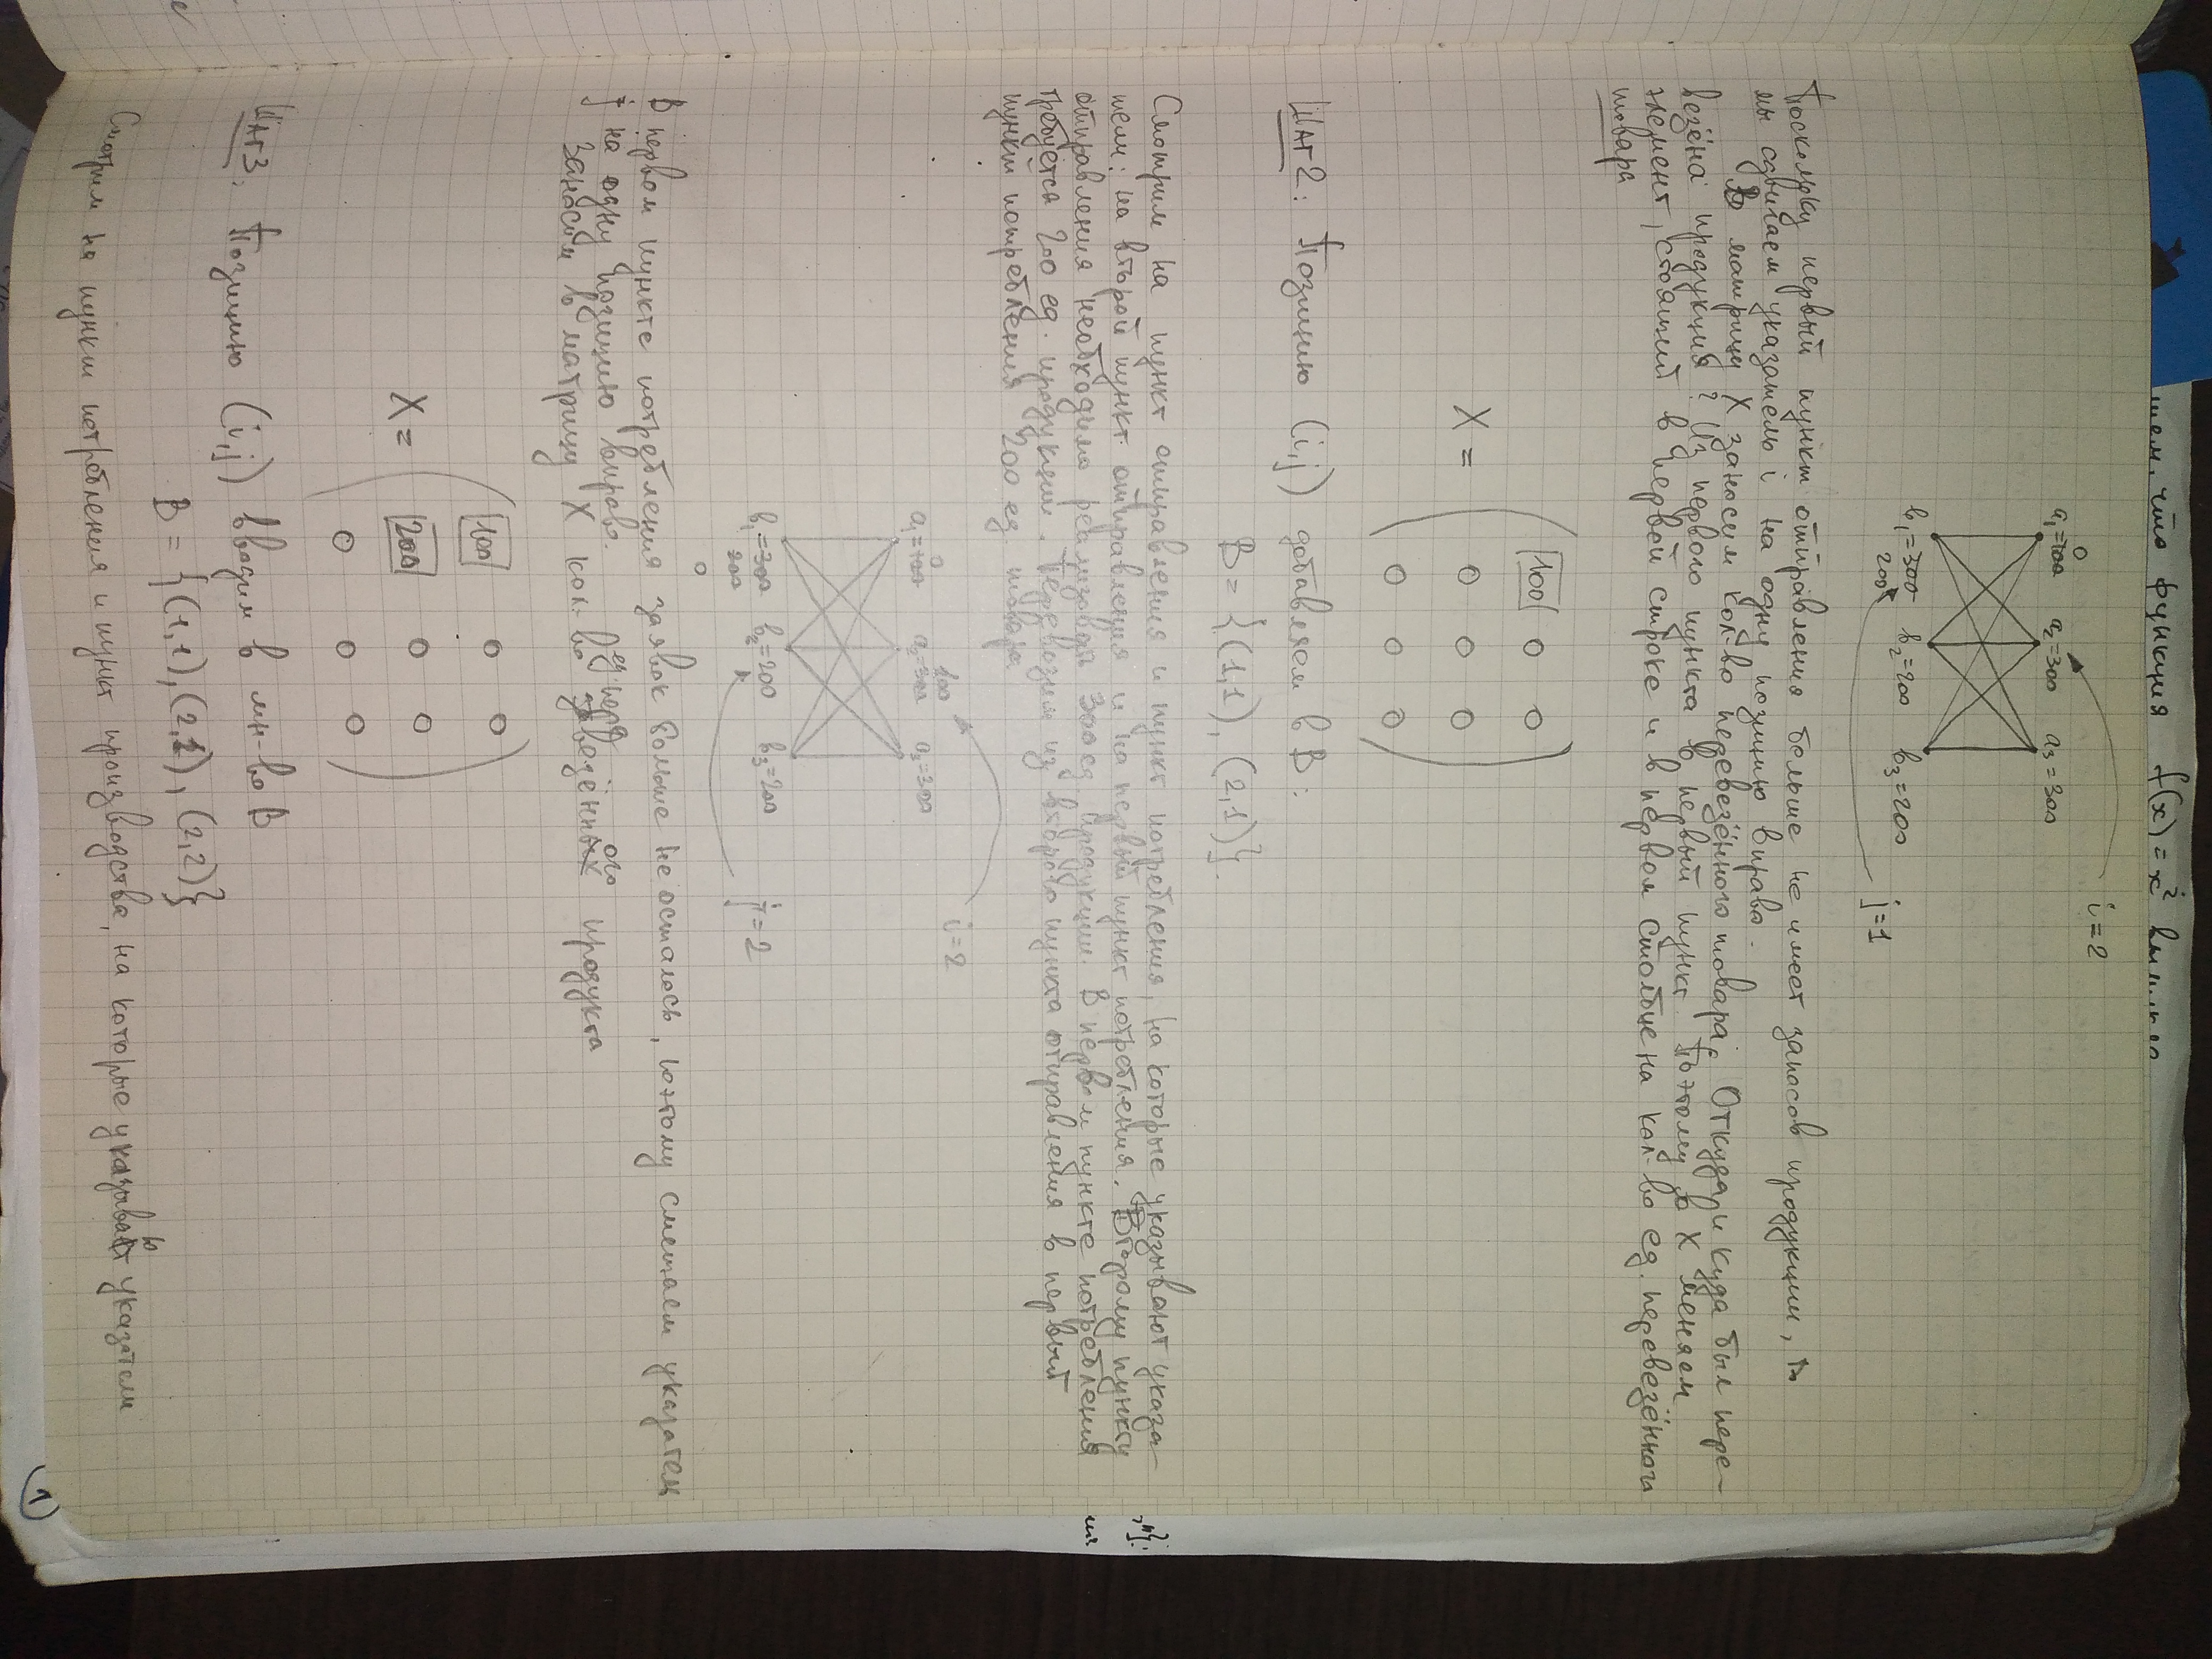 что функция f(x) = x²
i=2
0
a₁=100 a₂=300 a₃=300
b₁=300 b₂=200 b₃=200
200
j=1
Поскольку первый пункт отправления больше не имеет запасов продукции,
мы сдвигаем указатель i на одну позицию вправо.
В матрицу X заносим кол-во перевезённого товара. Откуда и куда был пере-
везёна продукция? Из первого пункта в первый пункт. Поэтому в X меняем
элемент, стоящий в первой строке и в первом столбце на кол-во ед. перевезённого
товара
100 0 0
X = 0 0 0
0 0 0
Шаг 2: Позицию (i,j) добавляем в B:
B = {(1,1), (2,1)}.
Смотрим на пункт отправления и пункт потребления, на которые указывают указа-
тели: на второй пункт отправления и на первый пункт потребления. Второму пункту
отправления необходимо реализовать 300 ед. продукции. В первом пункте потребления
требуется 200 ед. продукции. Перевозим из второго пункта отправления в первый
пункт потребления 200 ед. товара.
i=2
0 100
a₁=100 a₂=300 a₃=300
b₁=300 b₂=200 b₃=200
200
0
j=2
В первом пункте потребления заявок больше не осталось, поэтому смещаем указатель
j на одну позицию вправо.
Заносим в матрицу X кол-во ед. перевезённого продукта
100 0 0
X = 200 0 0
0 0 0
Шаг 3. Позицию (i,j) вводим в мн-во B
B = {(1,1), (2,1), (2,2)}
Смотрим на пункт потребления и пункт производства, на которые указывают указатели
1